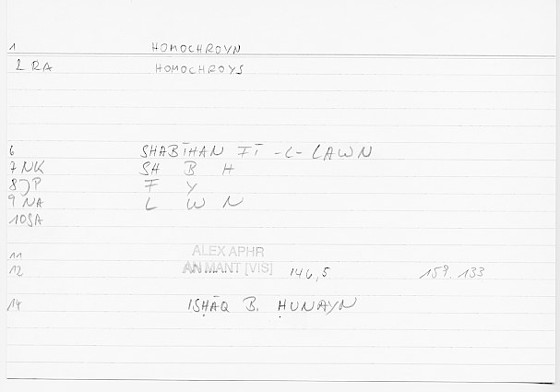 1 HOMOCHROYN
2 RA HOMOCHROYS
6 SHABĪHAN FĪ -L- LAWN
7 NK SH B H
8 )P F Y
9 NA L W N
10 SA
11 ALEX APHR
12 AN MANT [VIS] 146,5 159.133
14 ISḤĀQ B. ḤUNAYN